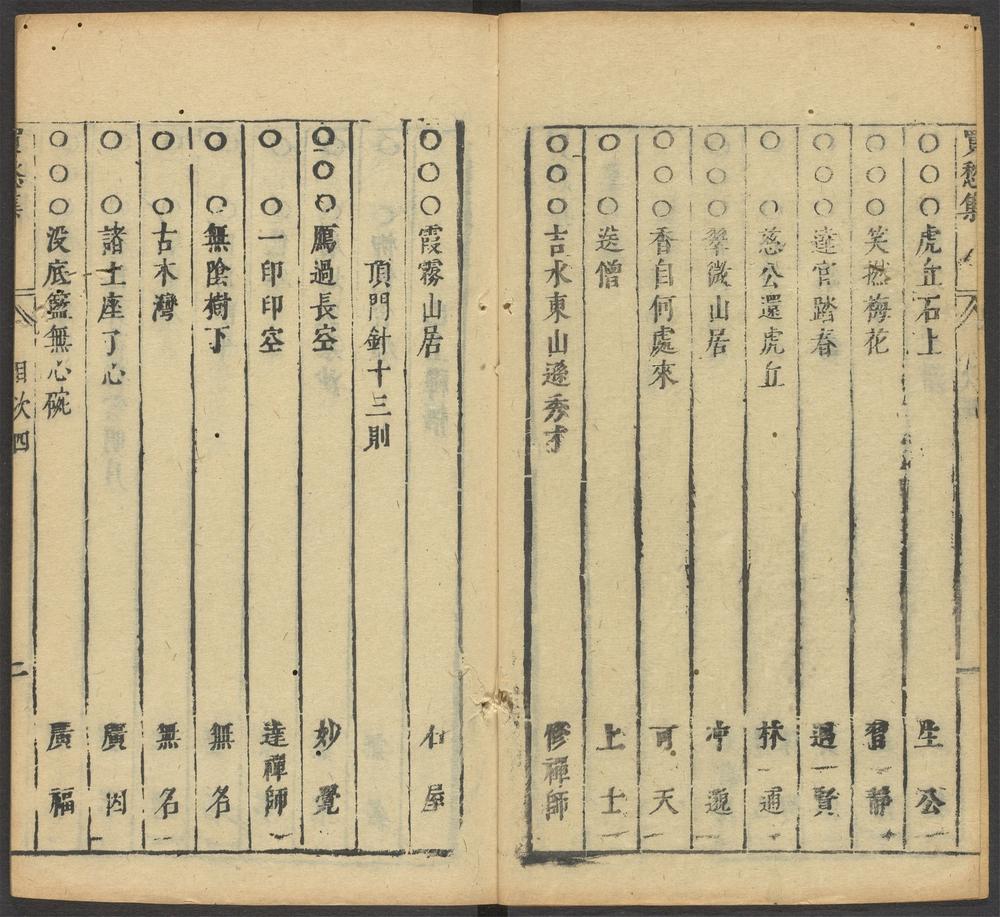 買愁集
○○○虎丘石上 生公
○○○笑撚梅花 習靜
○○○達官踏春 遇賢
○ ○慈公還虎丘 林逋
○○○翠微山居 冲邈
○○○香自何處來 可天
○ ○送僧 上士
○○○吉水東山遜秀才 修禪師
○○○霞霧山居 石屋
頂門針十三則
○○○鴈過長空 妙覺
○ ○一印印空 達禪師
○ ○無陰樹下 無名
○ ○古木灣 無名
○ ○諸土座了心 廣因
○○○没底籃無心碗 廣福
買愁集 目次四 二